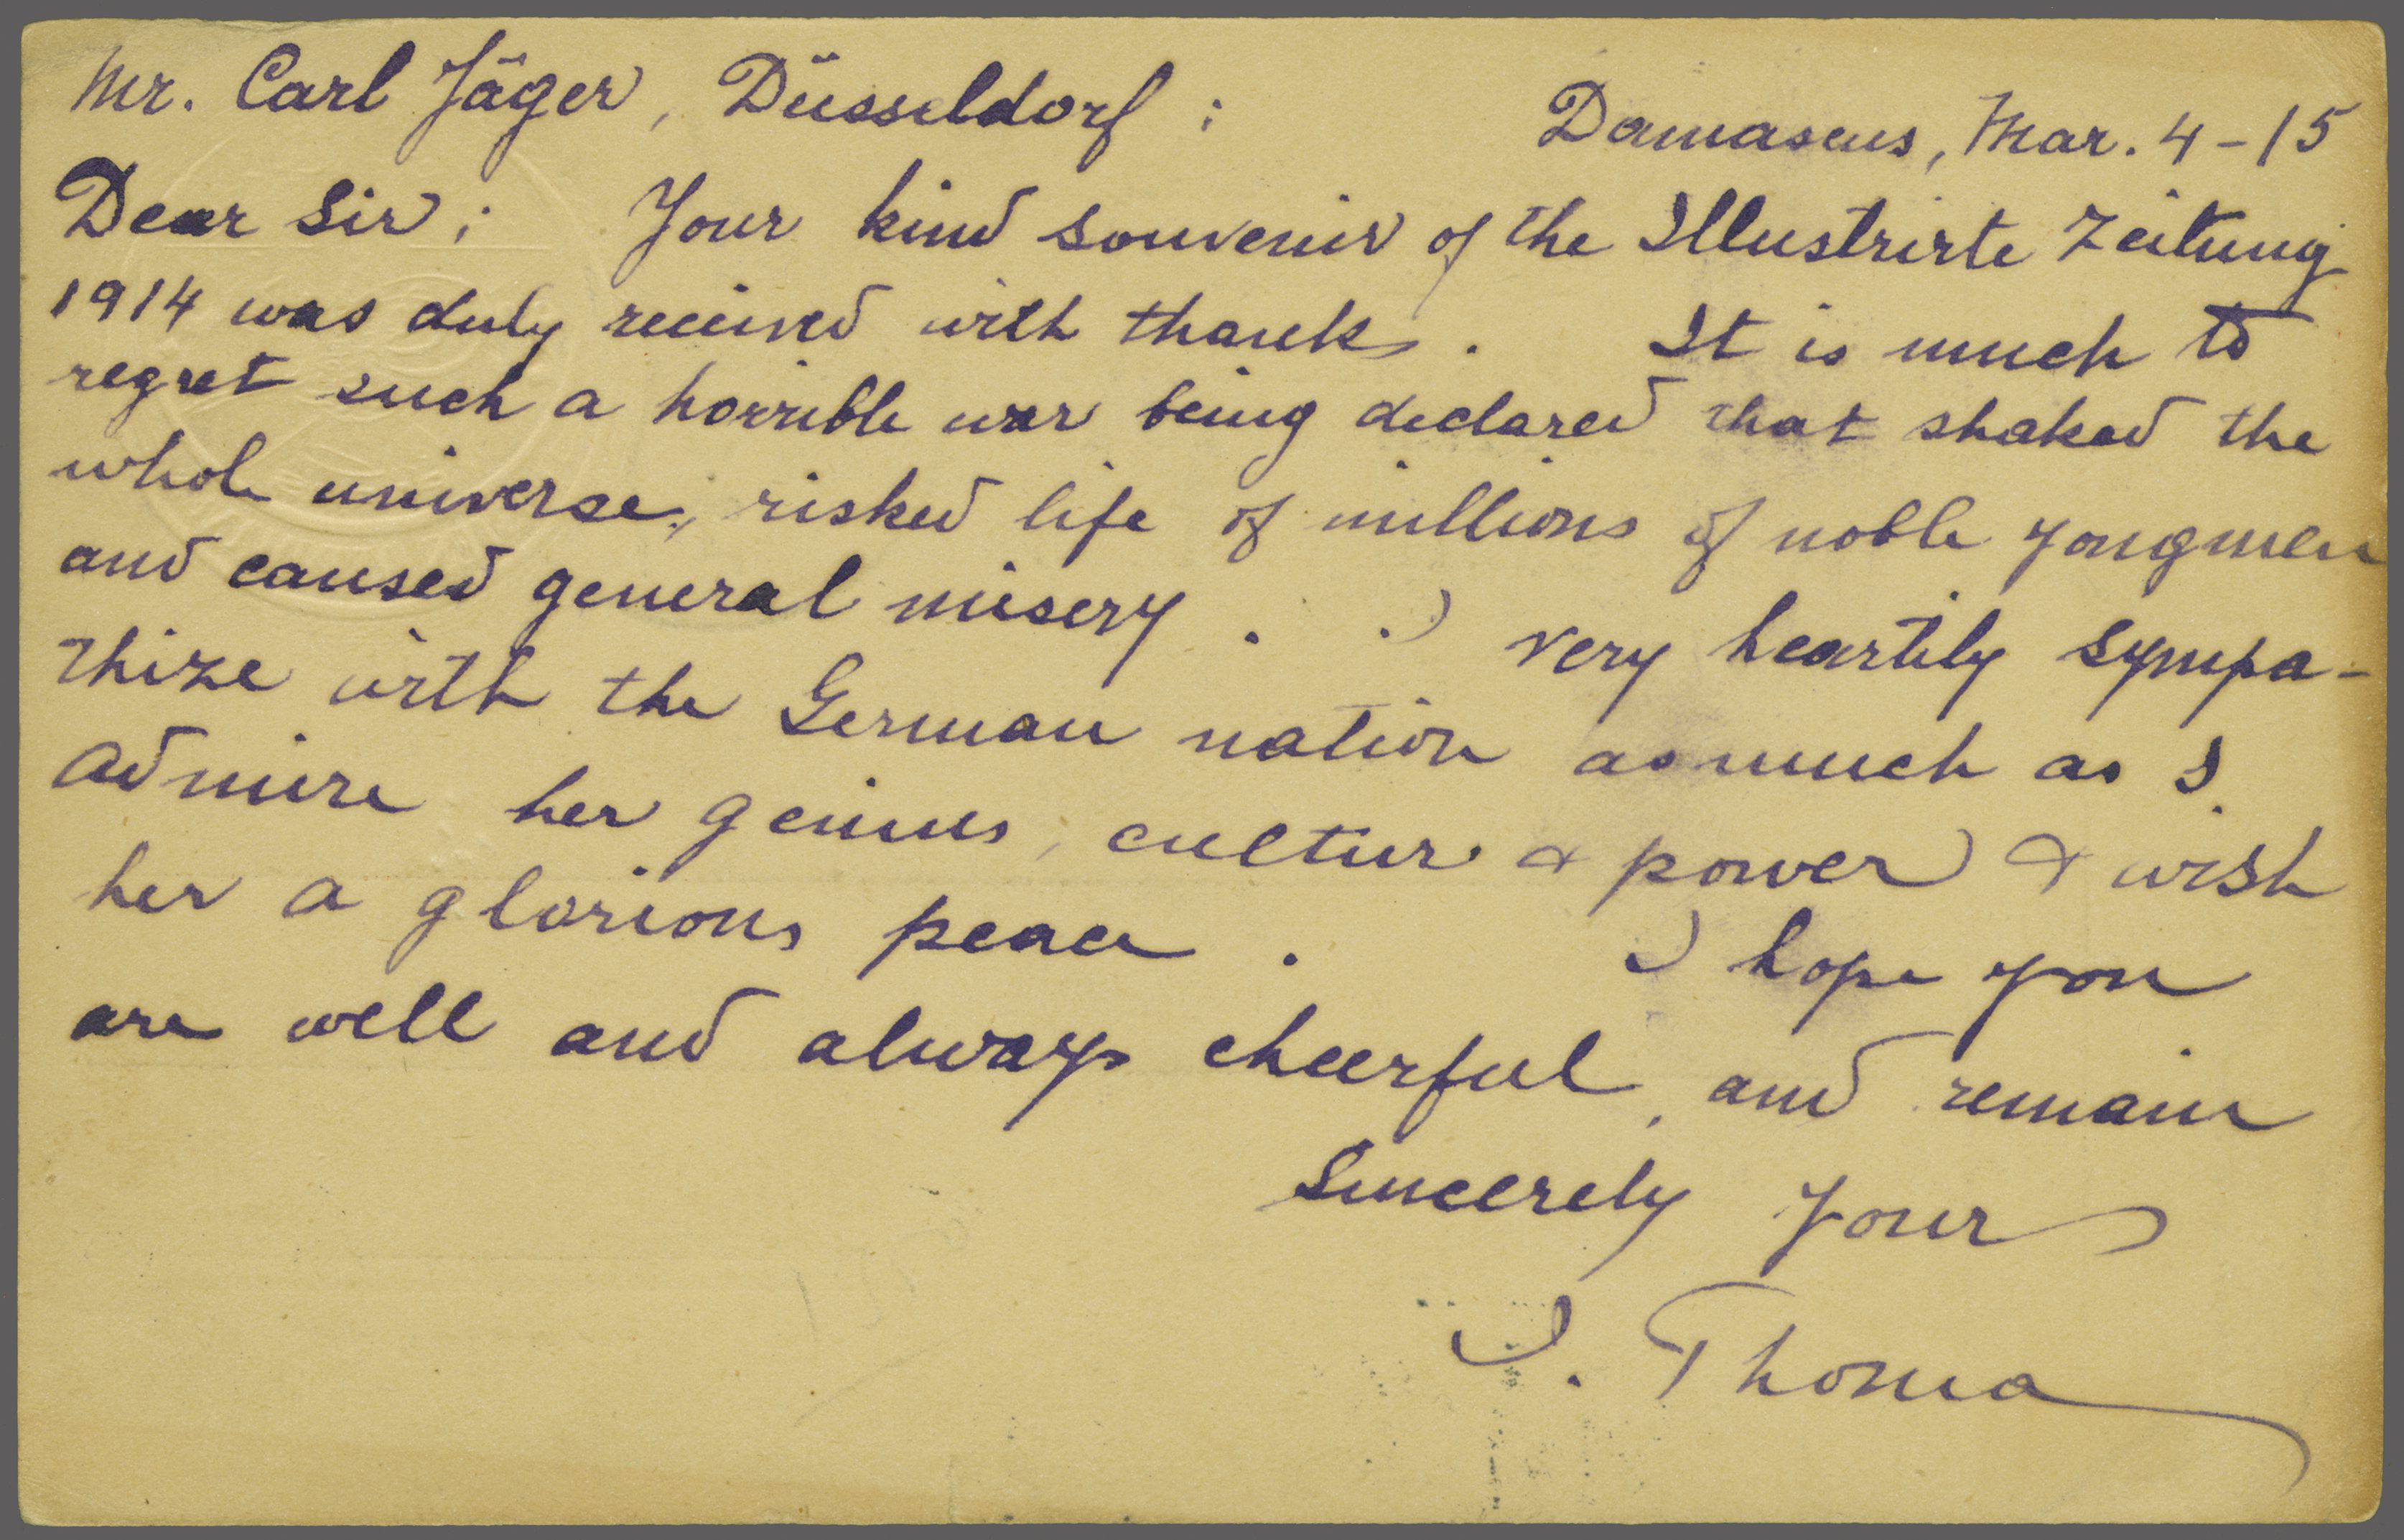 Mr. Carl Jäger, Düsseldorf; Damascus, Mar. 4-15
Dear Sir; Your kind souvenir of the Illustrirte Zeitung
1914 was duly received with thanks. It is much to
regret such a horrible war being declared that shaked the
whole universe, risked life of millions of noble yongmen
and caused general misery. I very heartily sympa-
thize with the German nation as much as I
admire her genius, cultur & power & wish
her a glorious peace. I hope you
are well and always cheerful, and remain
Sincerely Yours
I. Thoma